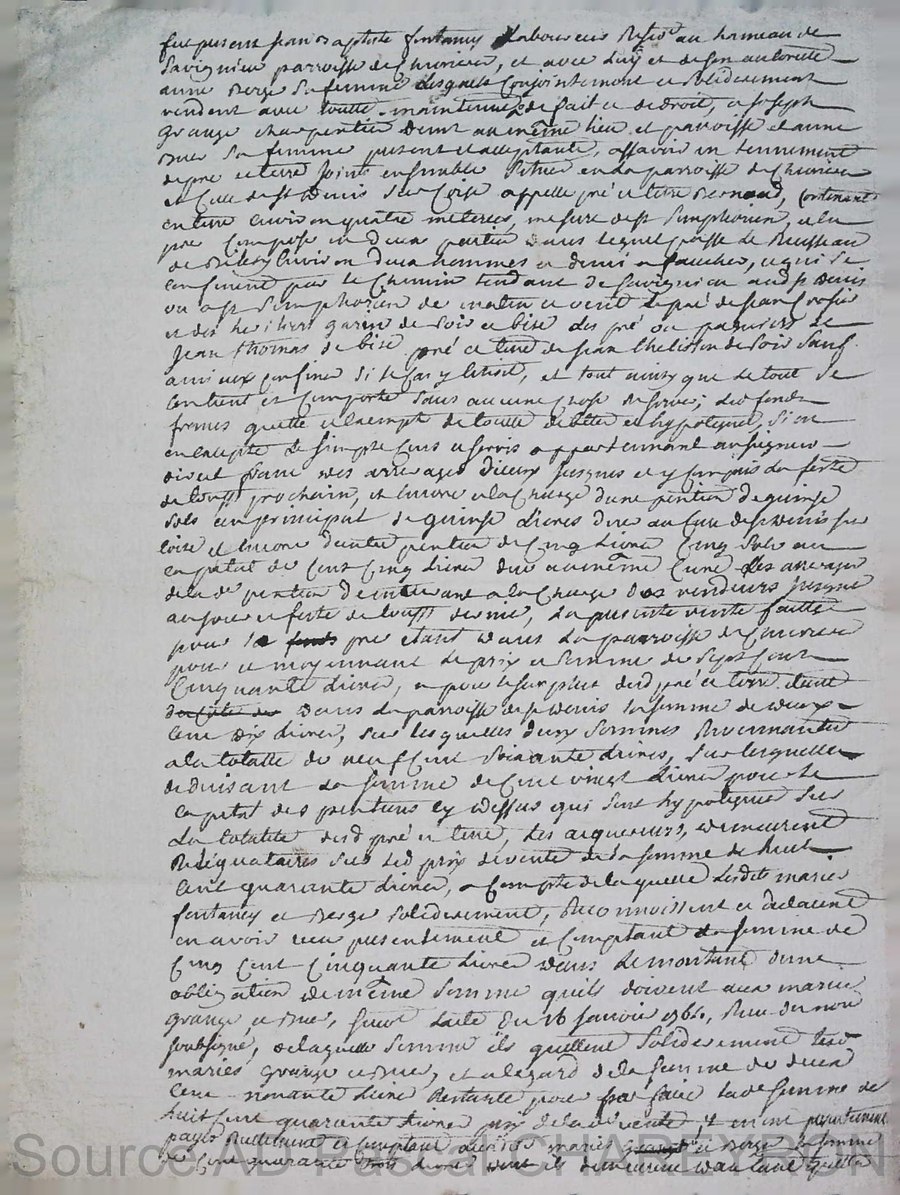 fut present jean Baptiste fontaney Laboureur Resid.t au hameau de
Savignieu parroisse de Chevrieres, et avec Luy et de son autorité
anne Berge sa femme Lesquels Conjointement et solidairement
vendent avec toutte maintenue de fait et de droit, a joseph
Grange charpentier Demt au même lieu et parroisse et anne
sa femme present et acceptants, assavoir un tennement
de pré et terre joints ensemble Situés en la parroisse de Chevrieres
et Celle de st Denis Sur Coise appellé pré et terre Bernoud, Contenant
en terre environ quatre meterées, mesure de st Simphorien, et le
pré Composé en deux parties dans lequel passe le Ruisseau
de environ deux hommes et demi a faucher, et qui se
confinent par le Chemin tendant de Savignieu aud st Denis
ou a st Simphorien de matin et vent Le pré de jean
et des heritiers garin de Soir et bise des pré ou pasquiers de
Jean thomas de bise pré et terre de jean de Soir Sauf
amieux confiner Si le Cas y Etoit, et tout ainsy que Le tout Se
Contient et Comporte Sans aucune Chose Reserver; de fonds
francs quitte et Exempt de toutte dettes et hypoteques, Si on
en Excepte Le Simple Cens et servis appartennant au Seigneur
direct franc des arrerages d'iceux jusques et y Compris La feste
de touss.t prochain, et Encore a la Charge d'une pention de quinse
sols au principal de quinse Livres dûe au Curé de st Denis sur
Coise et Encore d'autre pention de Cinq Livres Cinq Sols au
Capital de Cent Cinq Livres dûe au même Curé Les arrerages
de la de pention d'entre ant a la Charge des vendeurs jusque
au jour et feste de touss.t derniere, La presente vente faitte
pour le pré etant dans La parroisse de Chevrieres
pour et moyennant Le prix et Somme de Sept Cent
Cinquante Livres, et pour le surplus dud pré et terre
dans La parroisse de st Denis La somme de deux
Cent dix Livres, Sur Lesquelles deux Sommes Revenantes
a la totalle de neuf Cent Soixante Livres, Sur lesquelles
deduisant La Somme de Cent vingt Livres pour le
Capital des pentions Cy dessus qui sont hypotequés Sur
La totalité dud pré et terre, Les acquereurs, demeurent
Reliquataires sur led prix de vente de la Somme de huit
Cent quarante Livres, a Compte de laquelle Lesdits maries
fontaney et Berge Solidairement, Reconnoissent et declarent
en avoir reçu presentement et Comptant La Somme de
Cinq Cent Cinquante Livres dans Le montant d'une
obligation de même Somme quils doivent aux maries
Grange et faitte du 16 janvier 1764, Reçue du no.re
soussigné, de laquelle Somme ils quittent Solidairement Lesd
maries Grange et et a l'egard de la Somme de deux
Cent nonante Livres Restante pour faire lade Somme de
huit Cent quarante Livres prix de lade vente presentement
payés Reellement et Comptant auxdits maries et Berge La Somme
de Cent quarante Livres dont ils demeurent